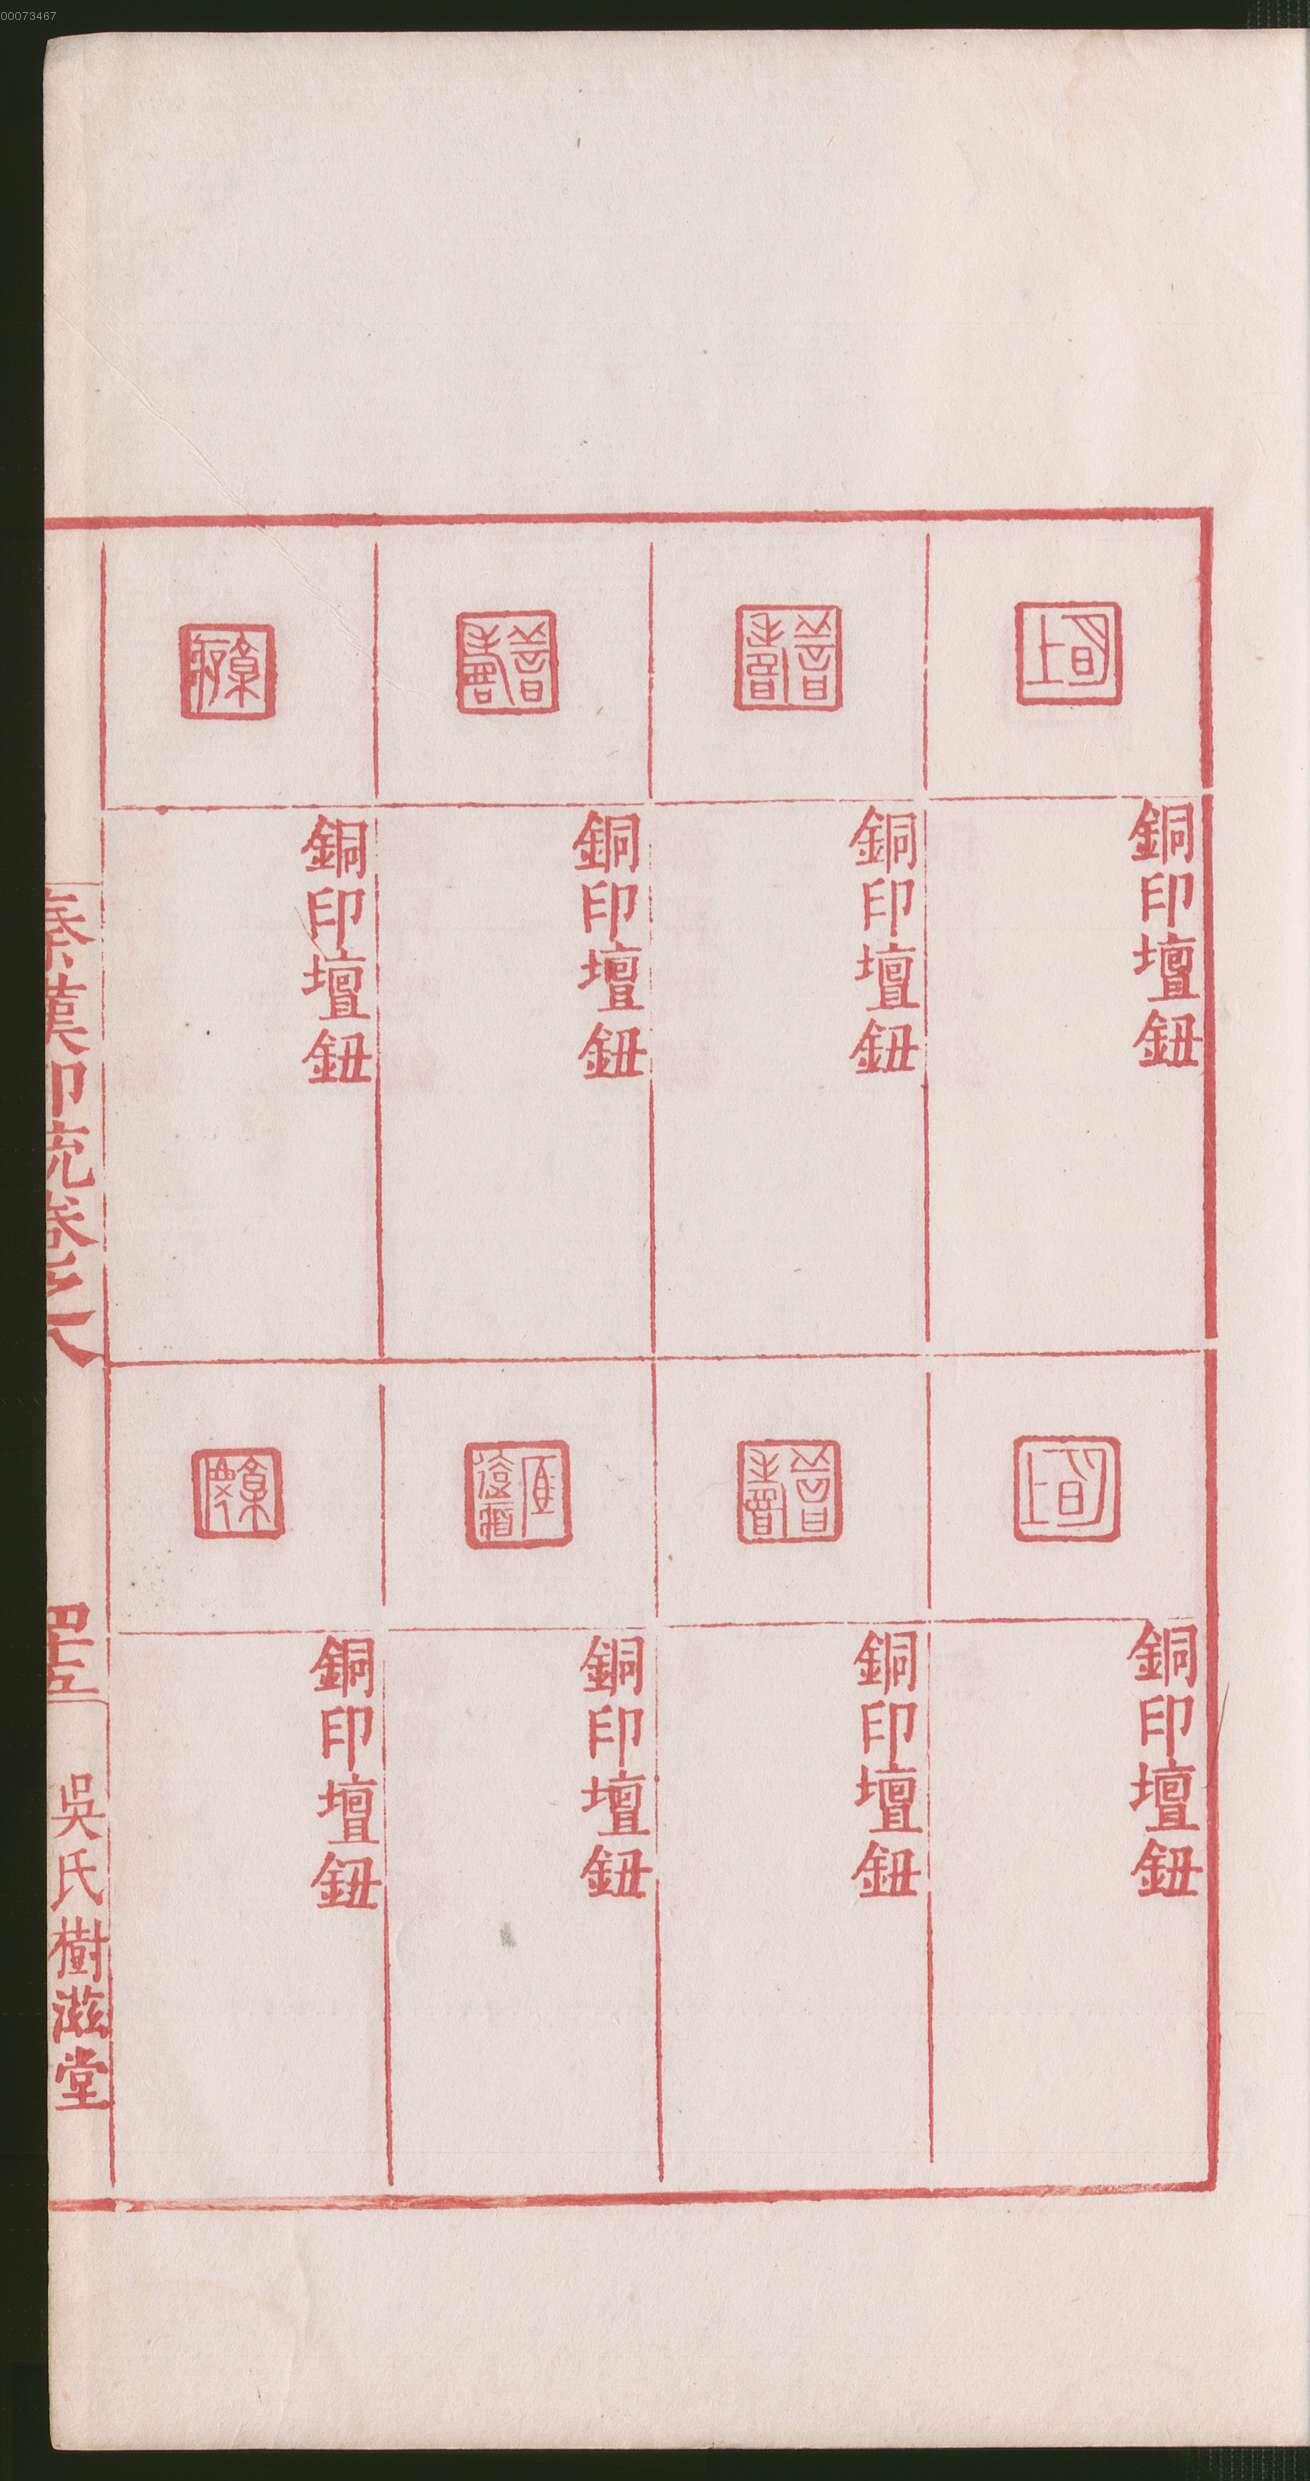 00073467
銅印壇鈕
銅印壇鈕
銅印壇鈕
銅印壇鈕
銅印壇鈕
銅印壇鈕
銅印壇鈕
銅印壇鈕
秦漢印統卷之八
四十五
吳氏樹滋堂